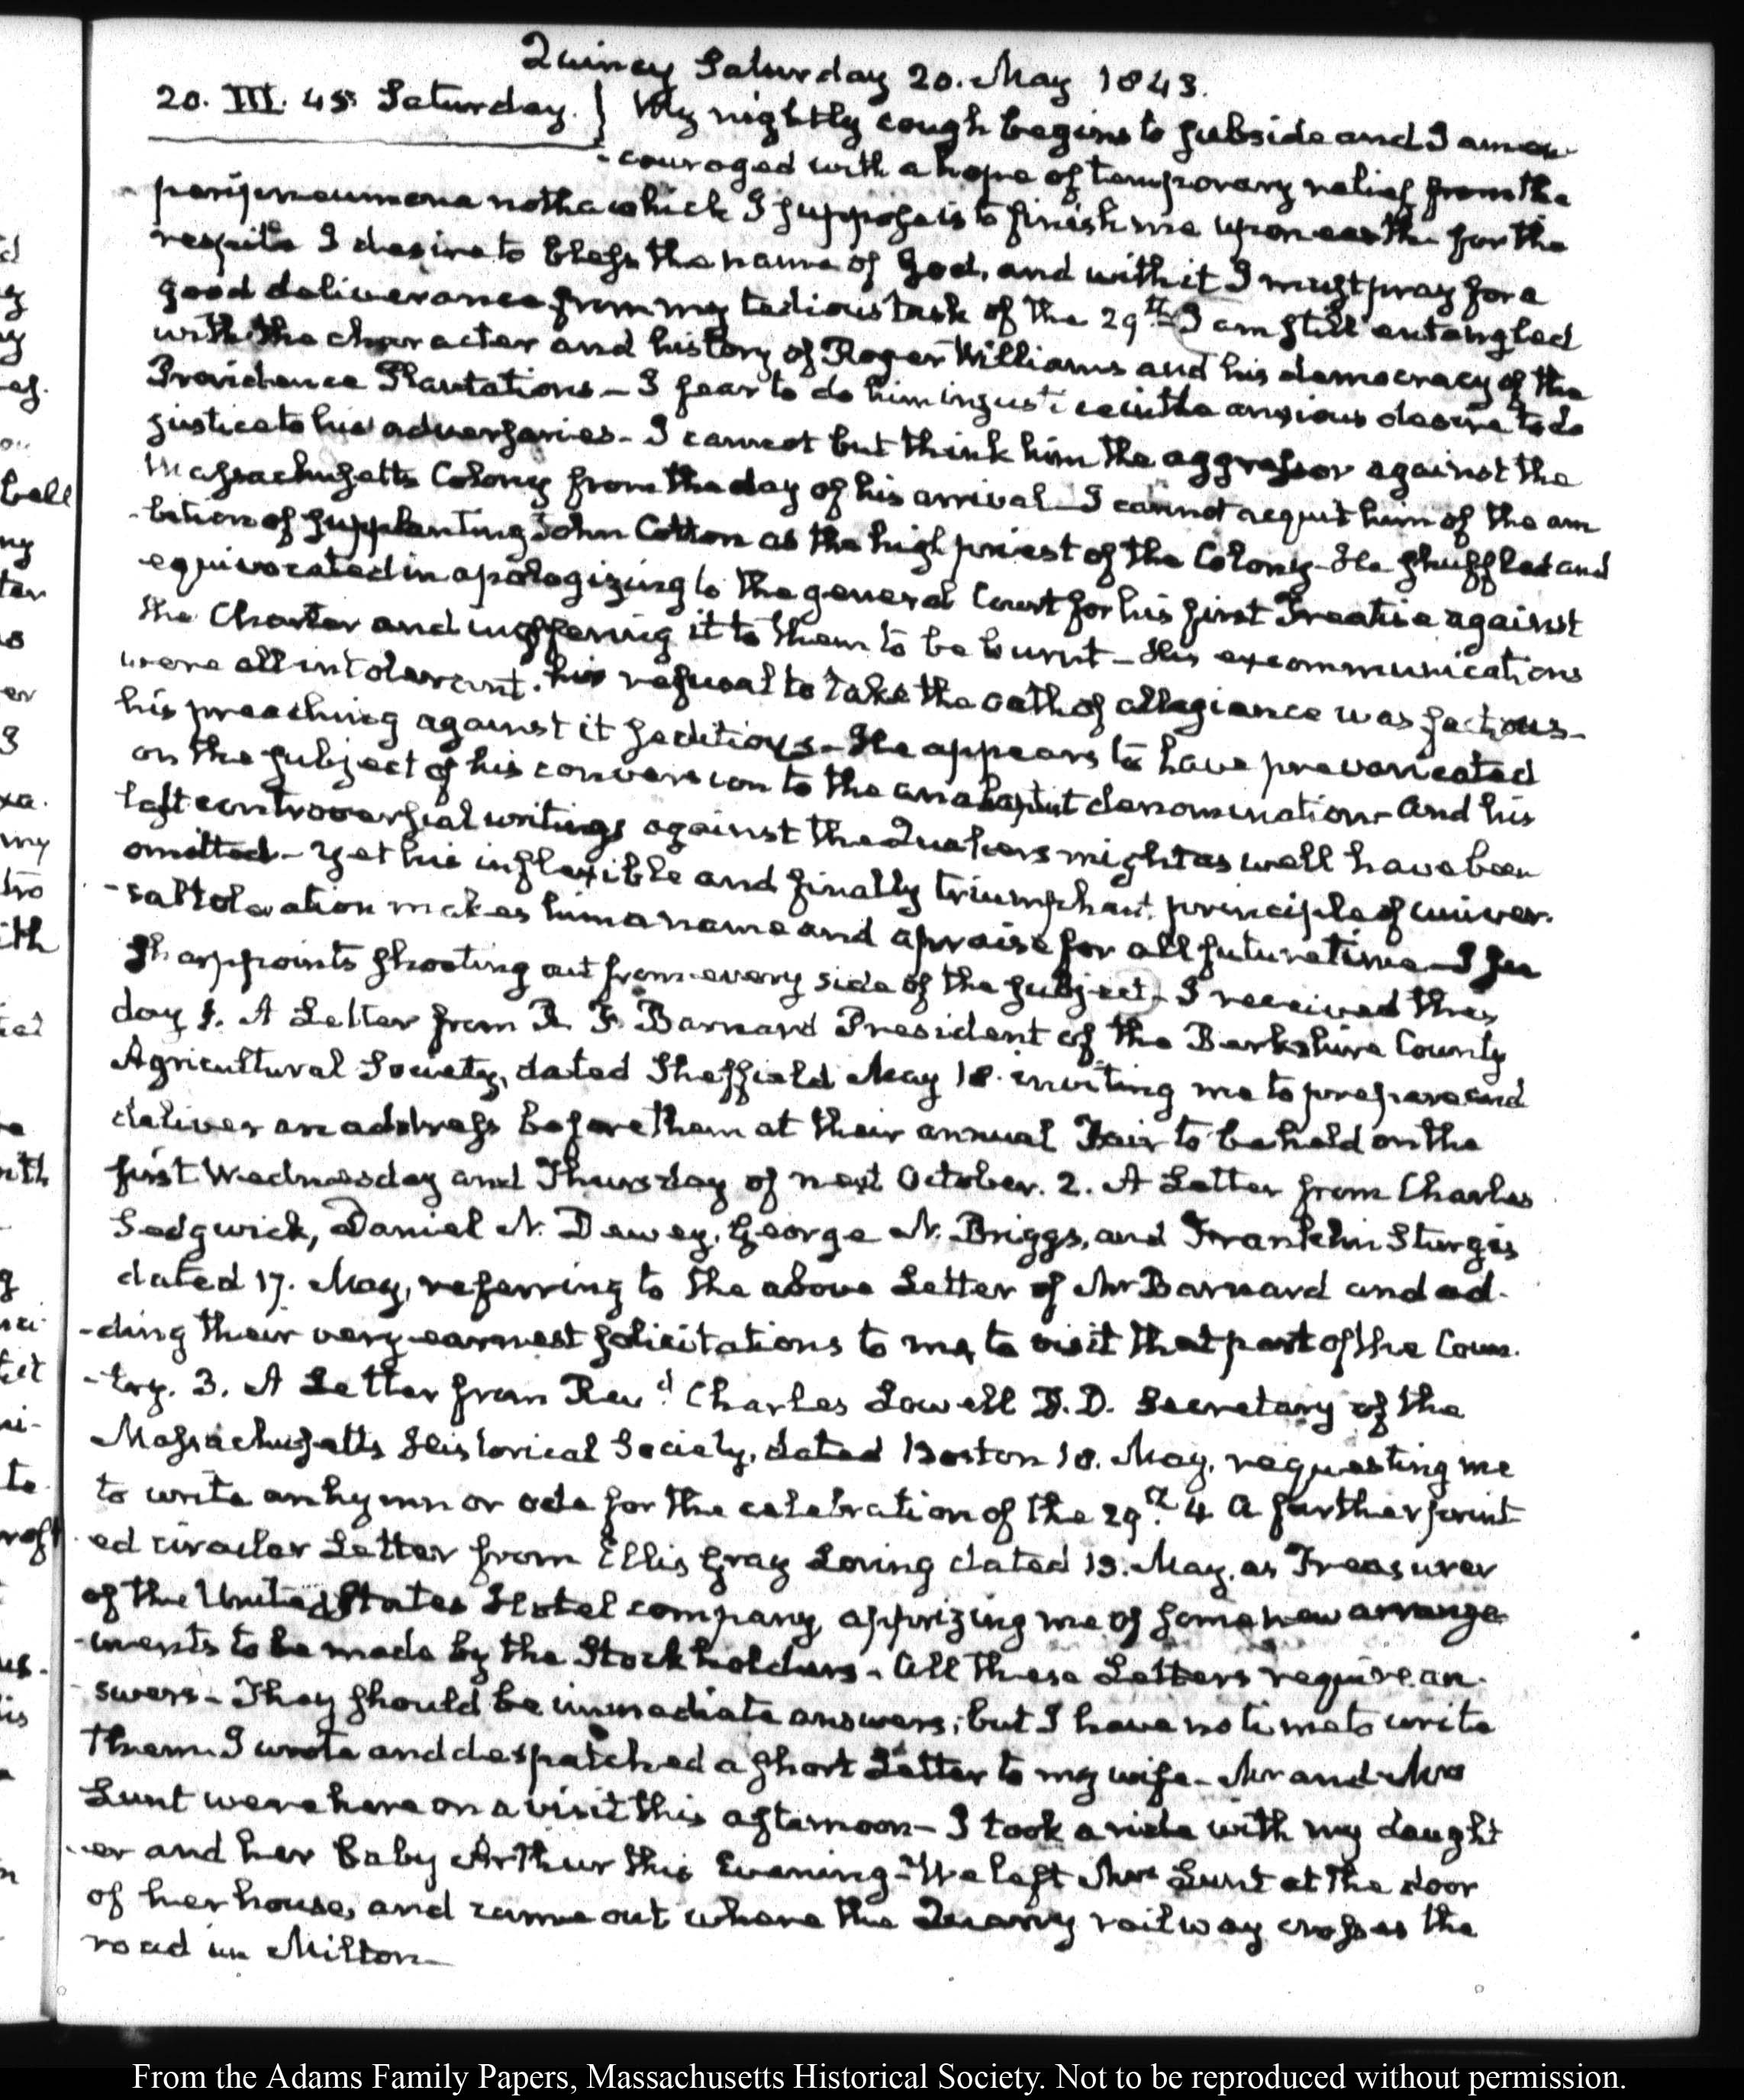 Quincy Saturday 20. May 1843.
20. III. 45. Saturday. } My nightly cough begins to subside and I am en-
-couraged with a hope of temporary relief from the
peripneumona notha which I suppose is to finish me upon earth for the
respite I desire to bless the name of God, and with it I must pray for a
good deliverance from my tedious task of the 29th. I am still entangled
with the character and history of Roger Williams and his democracy of the
Providence Plantations – I fear to do him injustice in the anxious desire to do
justice to his adversaries – I cannot but think him the aggressor against the
Massachusetts Colony from the day of his arrival – I cannot acquit him of the am
-bition of supplanting John Cotton as the high priest of the Colony – He shuffled and
equivocated in apologizing to the general Court for his first Treatise against
the Charter and in offering it to them to be burnt – His excommunications
were all intolerant. his refusal to take the oath of allegiance was factious –
his preaching against it seditious – He appears to have prevaricated
on the subject of his conversion to the anabaptist denomination – and his
last controversial writings against the Quakers might as well have been
omitted – Yet his inflexible and finally triumphant principle of univer-
-sal toleration makes him a name and a praise for all future time – I see
sharp points shooting out from every side of the subject – I received this
day 1. A Letter from R. F. Barnard President of the Berkshire County
Agricultural Society, dated Sheffield May 18. inviting me to prepare and
deliver an address before them at their annual Fair to be held on the
first Wednesday and Thursday of next October. 2. A Letter from Charles
Sedgwick, Daniel N. Dewey, George N. Briggs, and Franklin Sturgis
dated 17. May, referring to the above Letter of Mr Barnard and ad-
-ding their very earnest solicitations to me to visit that part of the Coun-
-try. 3. A Letter from Revd Charles Lowell D.D. Secretary of the
Massachusetts Historical Society, dated Boston 18. May, requesting me
to write an hymn or ode for the celebration of the 29th. 4 A further print
ed circular Letter from Ellis Gray Loring dated 13. May, as Treasurer
of the United States Hotel company, apprizing me of some new arrange
-ments to be made by the Stockholders – All these Letters require an-
swers – They should be immediate answers, but I have no time to write
them. I wrote and despatched a short Letter to my wife – Mr and Mrs
Lunt were here on a visit this afternoon – I took a ride with my daught
-er and her baby Arthur this Evening – We left Mrs Lunt at the door
of her house, and came out where the Quarry railway crosses the
road in Milton –
From the Adams Family Papers, Massachusetts Historical Society. Not to be reproduced without permission.